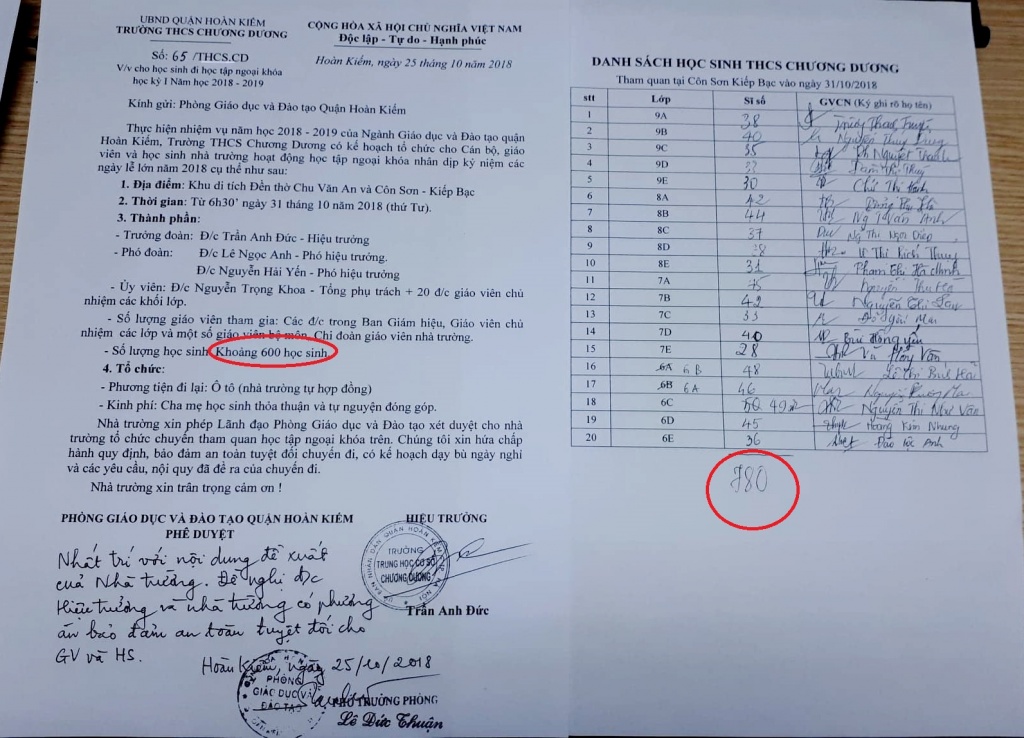 UBND QUẬN HOÀN KIẾM
TRƯỜNG THCS CHƯƠNG DƯƠNG
Số: 65 /THCS.CD
V/v cho học sinh đi học tập ngoại khóa
học kỳ I Năm học 2018 - 2019
CỘNG HÒA XÃ HỘI CHỦ NGHĨA VIỆT NAM
Độc lập - Tự do - Hạnh phúc
Hoàn Kiếm, ngày 25 tháng 10 năm 2018
Kính gửi: Phòng Giáo dục và Đào tạo Quận Hoàn Kiếm
Thực hiện nhiệm vụ năm học 2018 - 2019 của Ngành Giáo dục và Đào tạo quận
Hoàn Kiếm, Trường THCS Chương Dương có kế hoạch tổ chức cho Cán bộ, giáo
viên và học sinh nhà trường hoạt động học tập ngoại khóa nhân dịp kỷ niệm các
ngày lễ lớn năm 2018 cụ thể như sau:
1. Địa điểm: Khu di tích Đền thờ Chu Văn An và Côn Sơn - Kiếp Bạc
2. Thời gian: Từ 6h30' ngày 31 tháng 10 năm 2018 (thứ Tư).
3. Thành phần:
- Trưởng đoàn: Đ/c Trần Anh Đức - Hiệu trưởng
- Phó đoàn: Đ/c Lê Ngọc Anh - Phó hiệu trưởng.
Đ/c Nguyễn Hải Yến - Phó hiệu trưởng
- Ủy viên: Đ/c Nguyễn Trọng Khoa - Tổng phụ trách + 20 đ/c giáo viên chủ
nhiệm các khối lớp.
- Số lượng giáo viên tham gia: Các đ/c trong Ban Giám hiệu, Giáo viên chủ
nhiệm các lớp và một số giáo viên bộ môn, Chi đoàn giáo viên nhà trường.
- Số lượng học sinh: Khoảng 600 học sinh
4. Tổ chức:
- Phương tiện đi lại: Ô tô (nhà trường tự hợp đồng)
- Kinh phí: Cha mẹ học sinh thỏa thuận và tự nguyện đóng góp.
Nhà trường xin phép Lãnh đạo Phòng Giáo dục và Đào tạo xét duyệt cho nhà
trường tổ chức chuyến tham quan học tập ngoại khóa trên. Chúng tôi xin hứa chấp
hành quy định, bảo đảm an toàn tuyệt đối chuyến đi, có kế hoạch dạy bù ngày nghỉ
và các yêu cầu, nội quy đã đề ra của chuyến đi.
Nhà trường xin trân trọng cảm ơn !
PHÒNG GIÁO DỤC VÀ ĐÀO TẠO QUẬN HOÀN KIẾM
PHÊ DUYỆT
Nhất trí với nội dung đề xuất
của Nhà trường. Đề nghị đ/c
Hiệu trưởng và nhà trường có phương
án bảo đảm an toàn tuyệt đối cho
GV và HS.
Hoàn Kiếm, ngày 25/10/2018
PHÒNG
GIÁO DỤC VÀ
ĐÀO TẠO
PHÓ TRƯỞNG PHÒNG
Lê Đức Thuận
HIỆU TRƯỞNG
TRƯỜNG
TRUNG HỌC CƠ SỞ
CHƯƠNG DƯƠNG
Trần Anh Đức
DANH SÁCH HỌC SINH THCS CHƯƠNG DƯƠNG
Tham quan tại Côn Sơn Kiếp Bạc vào ngày 31/10/2018
stt Lớp Sĩ số GVCN (Ký ghi rõ họ tên)
1 9A 38
2 9B 40 Nguyễn Thuỳ Dung
3 9C 35 Nguyệt Thanh
4 9D 33
5 9E 30 Chử Thị Hạnh
6 8A 42
7 8B 44 Ng T Vân Anh
8 8C 37 Ng Thị Ngọc Diệp
9 8D 38
10 8E 31 Phạm Thị Hà
11 7A Nguyễn Thu
12 7B 42 Nguyễn Thị
13 7C 33 Mai
14 7D 40 Bùi Hồng Yến
15 7E 28 Vũ Hồng Vân
16 6A 6B 48 Lê Thị
17 6B 6A 46 Nguyễn
18 6C Nguyễn Thị Như Vân
19 6D 45 Hoàng Kim Nhung
20 6E 36 Đào Lộc Anh
780